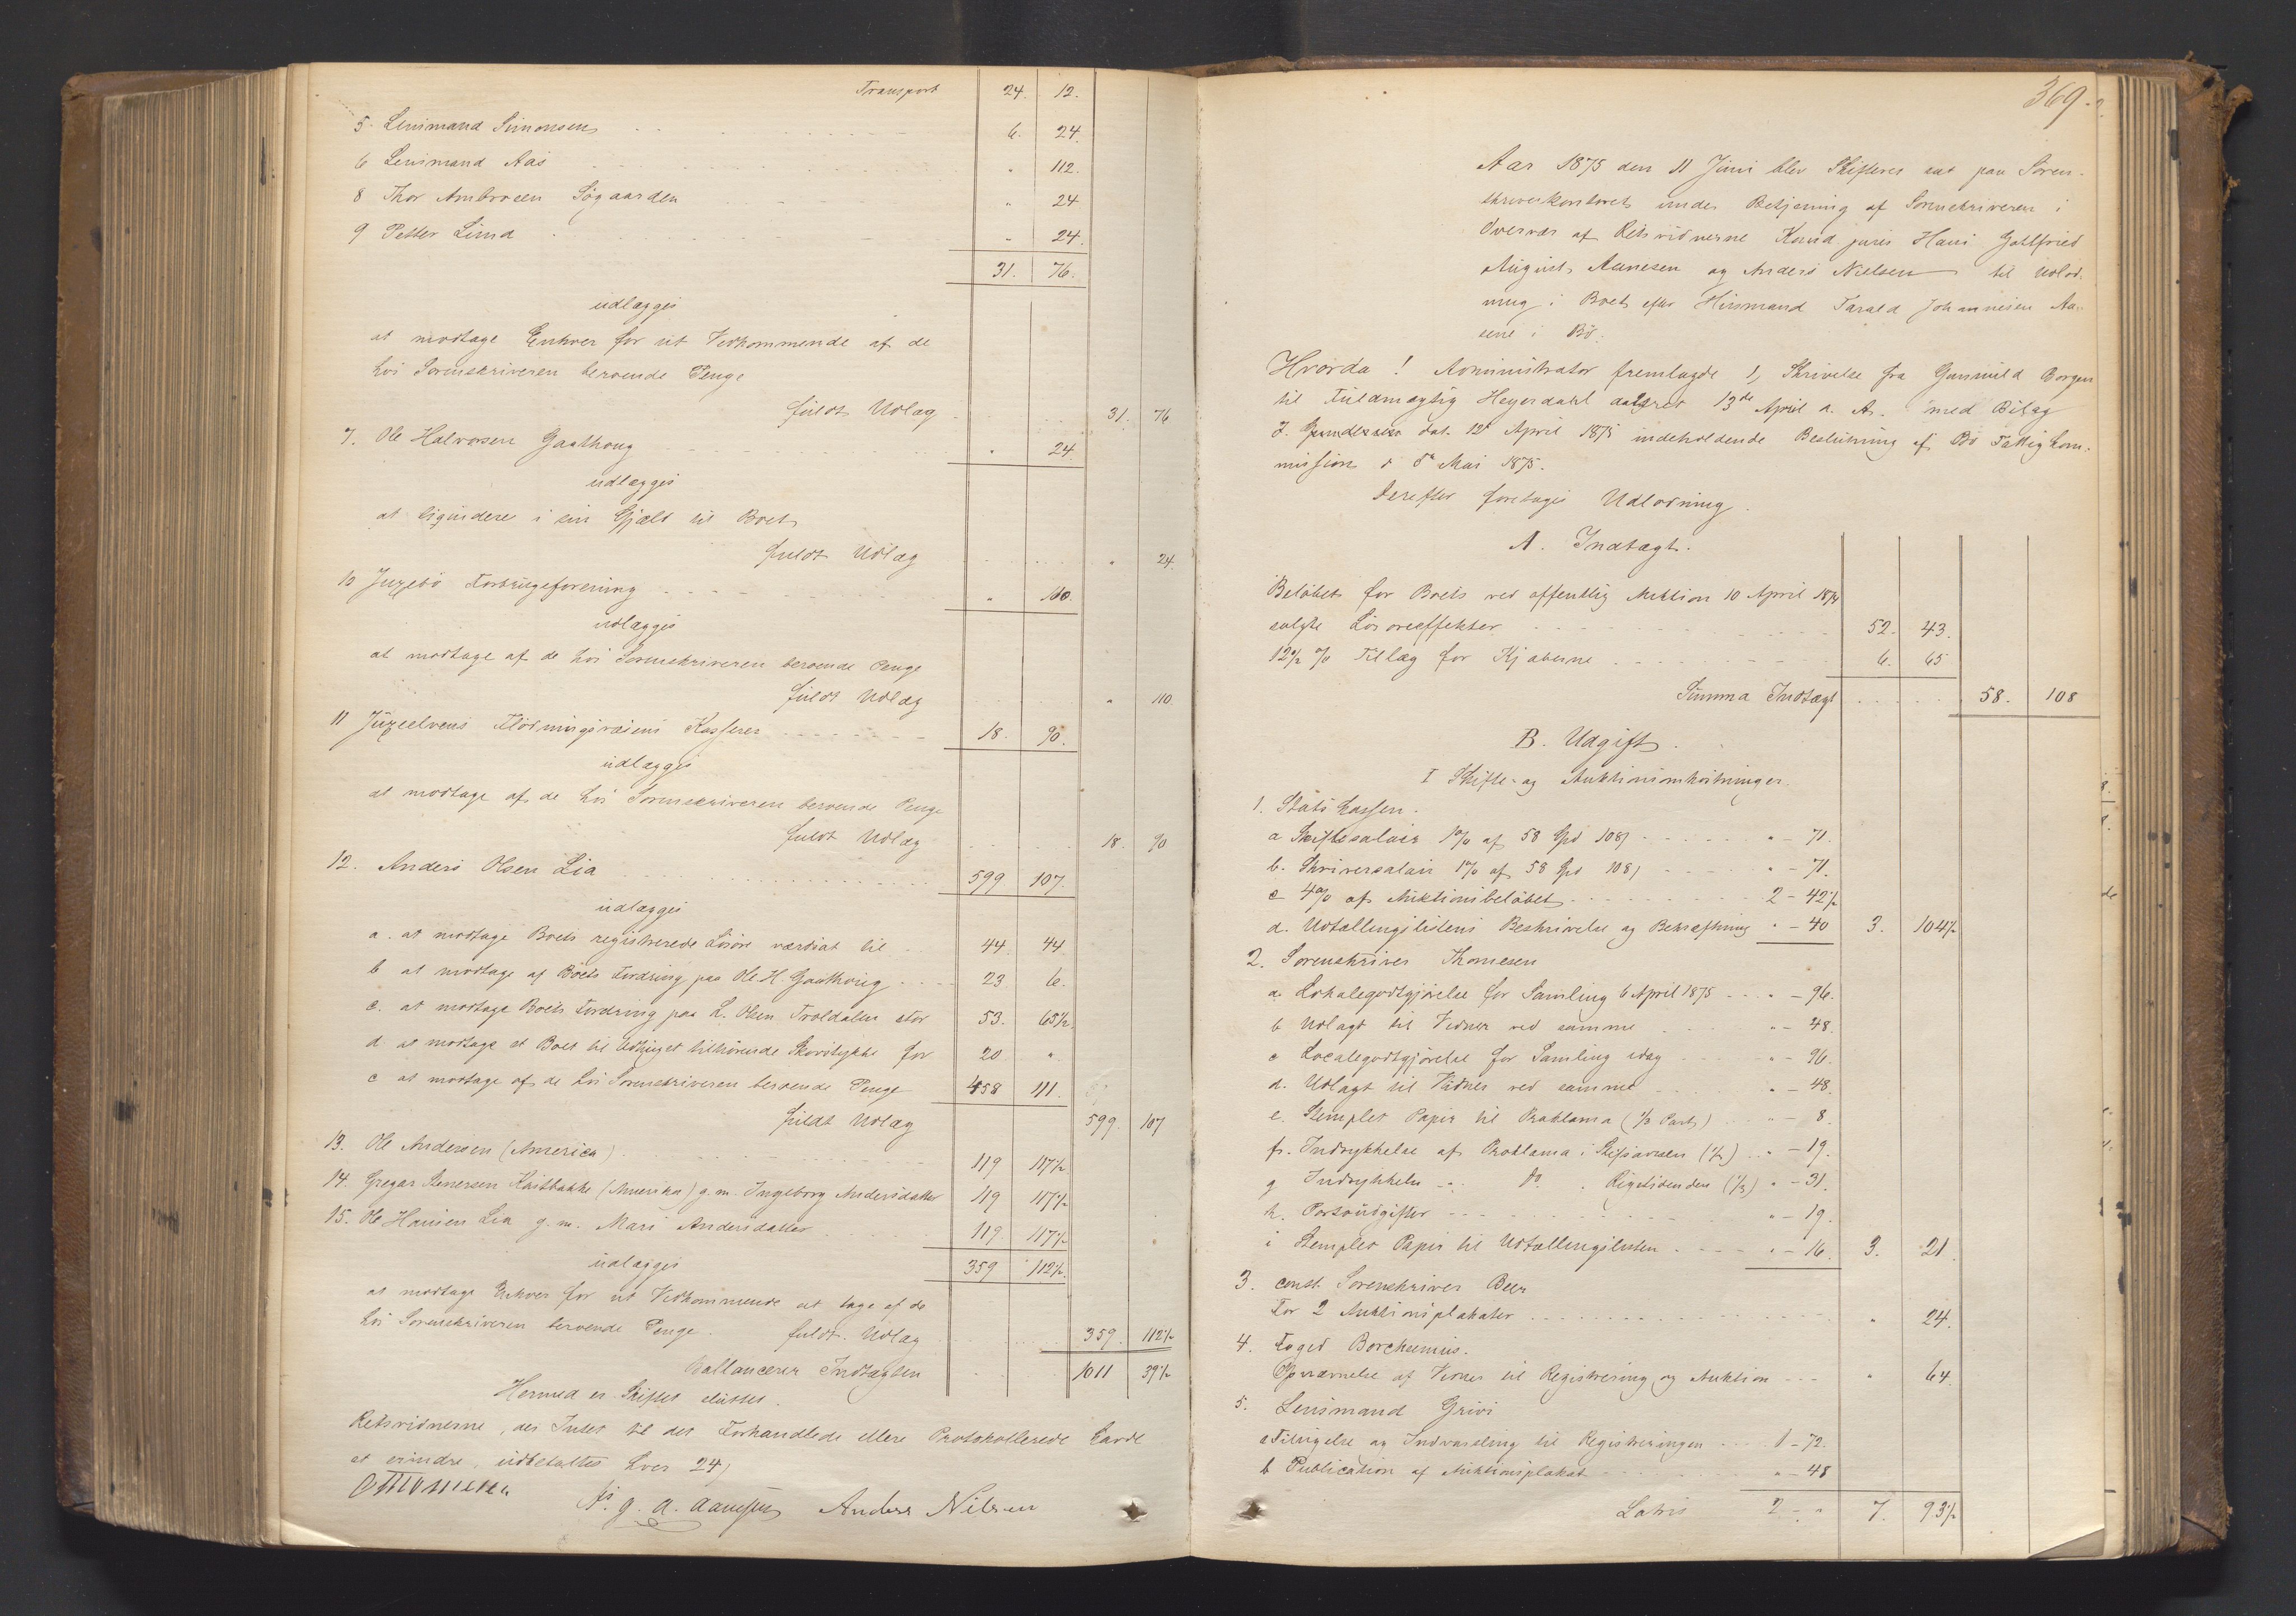 Transport 24. 12.
5. Lensmand Simonsen 6. 24.
6 Lensmand Aas " 112.
8 Thor Ambrosen Søgaarden " 24
9 Petter Lund " 24.
31. 76.
udlægges
at modtage Enhver for sit Vedkommende af de
hos Sorenskriveren beroende Penge
fuldt Udlæg 31. 76
7. Ole Halvorsen Gaathoug " 24
udlægges
at liqvidere i sin Gjæld til Boet
fuldt Udlæg " 24.
10 Forbrugsforening " 110.
udlægges
at modtage af de hos Sorenskriveren beroende Penge
fuldt Udlæg " 110.
11 Flødningsvæsens Kasserer 18. 90.
udlægges
at modtage af de hos Sorenskriveren beroende Penge
fuldt Udlæg 18. 90
12. Anders Olsen Lia 599 107.
udlægges
a. at modtage Boets registrerede Løsøre værdsat til 44. 44
b at modtage af Boets Fordring paa Ole H. Gaathoug 23 6.
c. at modtage Boets Fordring paa L. Olsen Troldalen stor 53. 65½
d. at modtage et Boet tilhørende Skovstykke for 20 "
e at modtage af de hos Sorenskriveren beroende Penge 458 111.
fuldt Udlæg 599. 107
13. Ole Andersen (America) 119 117½
14. Gregar Stenersen (Amerika) g. m. Ingeborg Andersdatter 119 117½
15. Ole Hansen Lia g. m. Mari Andersdatter 119. 117½
udlægges 359 112½
at modtage Enhver for sit Vedkommende at tage af de
hos Sorenskriveren beroende Penge. fuldt Udlæg 359. 112½
Ballancerer Indtægten 1011 39½
Hermed er Skiftet sluttet.
Retsvidnerne, der Intet til det Forhandlede eller Protokollerede havde
at erindre, udbetaltes hver 24,
OThomesen
H. G. A. Aanesen Anders Nilsen
369.
Aar 1875 den 11 Juni blev Skifteret sat paa Soren-
skriverkontoret under Betjening af Sorenskriveren i
Overvær af Retsvidnerne Kand. juris Hans Gottfried
August Aanesen og Anders Nielsen til Udlod-
ning i Boet efter Husmand Tarald Johannesen Aa-
sene i Bø.
Hvorda! Administrator fremlagde 1, Skrivelse fra Gunnild Borgen
til Fuldmægtig Heyerdahl dateret 13de April d. A. med Bilag
J. Gundersen dat. 12te April 1875 indeholdende Beslutning af Bø Fattigkom-
mission d 8de Mai 1875.
Derefter foretoges Udlodning.
A. Indtægt.
Beløbet for Boets ved offentlig Auktion 10 April 1875
solgte Løsøreeffekter 52. 43.
12½ % Tillæg for Kjøberne 6. 65
Summa Indtægt 58. 108
B. Udgift.
I Skifte- og Auktionsomkostninger.
1. Statskassen.
a Skiftesalair 1% af 58 Spd 108, " - 71.
b. Skriversalair 1% af 58 Spd 108, " - 71.
c 4% af Auktionsbeløbet 2 - 42½
d. Udtællingslistens Beskrivelse og Bekræftning " - 40 3. 104½
2. Sorenskriver Thomesen
a. Lokalegodtgjørelse for Samling 6 April 1875 " - 96.
b Udlagt til Vidner ved samme " - 48.
c Localegodtgjørelse for Samling idag " - 96.
d. Udlagt til Vidner ved samme " - 48.
e. Stemplet Papir til Proklama (⅓ Part) " - 8.
f. Indrykkelse af Proklama i Skiensavisen (⅓) " - 19.
g Indrykkelse " Do " Rigstidenden (⅓) " - 31.
h. Portoudgifter " - 19.
i Stemplet Papir til Udtællingslisten " - 16. 3. 21
3. const. Sorenskriver Beer
For 2 Auktionsplakater " 24.
4. Foged Borchsenius.
Opnævnelse af Vidner til Registrering og Auktion " 64.
5. Lensmand Grivi
a Tilsigelse og Indvarsling til Registreringen 1 - 72.
b Publication af Auktionsplakat " - 48
Latus 2 - " 7. 93½